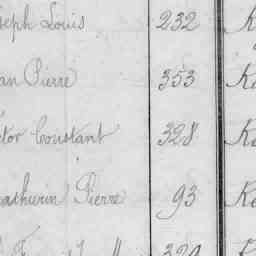 seph Louis 232 K
an Pierre 353 Ke
ctor Constant 328 Ke
athurin Pierre 93 Ke
320